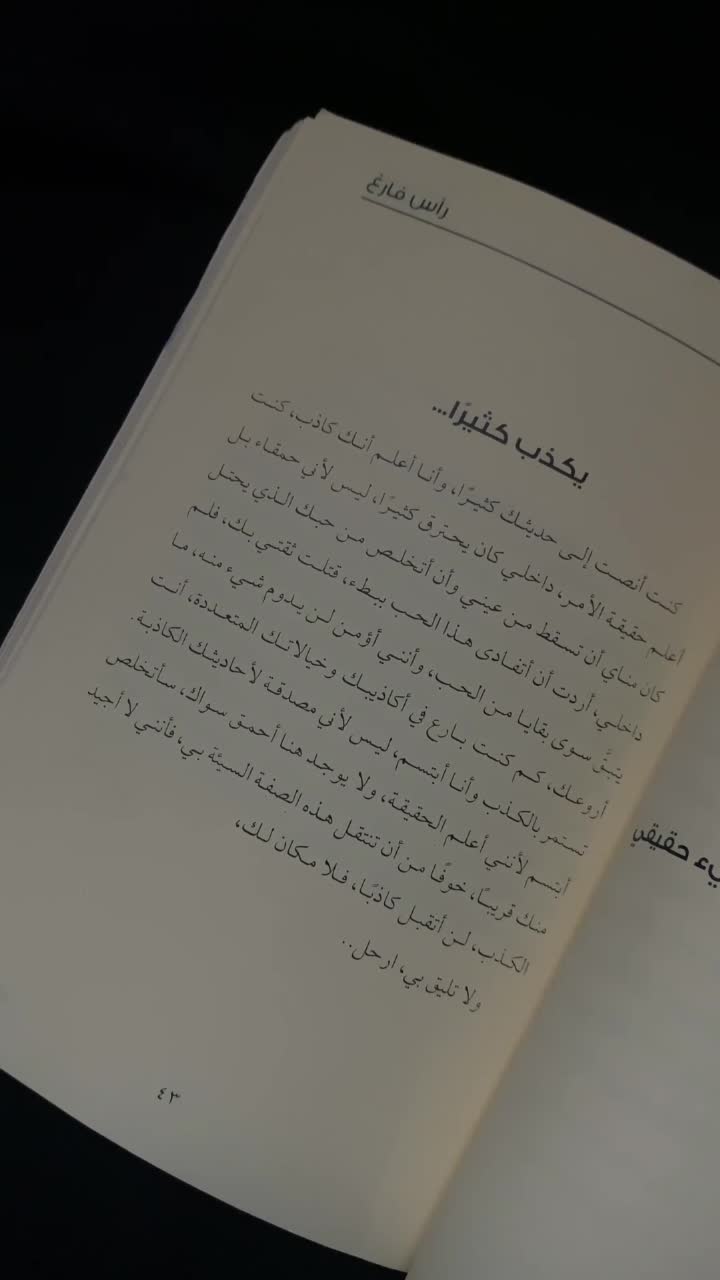 رأس فارغ
يكذب كثيرًا...
كنت أنصت إلى حديثك كثيرًا، وأنا أعلم أنك كاذب، كنت
أعلم حقيقة الأمر، داخلي كان يحترق كثيرًا، ليس لأني حمقاء بل
كان مناي أن تسقط من عيني وأن أتخلص من حبك الذي يحتل
داخلي، أردت أن أتفادى هذا الحب ببطء، قتلت ثقتي بك، فلم
يتبقَّ سوى بقايا من الحب، وأنني أؤمن لن يدوم شيء منه، ما
أروعك، كم كنت بارع في أكاذيبك وخيالاتك المتعددة، أنت
تستمر بالكذب وأنا أبتسم، ليس لأني مصدقة لأحاديثك الكاذبة.
أبتسم لأنني أعلم الحقيقة، ولا يوجد هنا أحمق سواك، سأتخلص
منك قريبًا، خوفًا من أن تنتقل هذه الصفة السيئة بي، فأنني لا أجيد
الكذب، لن أتقبل كاذبًا، فلا مكان لك،
ولا تليق بي، ارحل..
٤٣
يء حقيقي